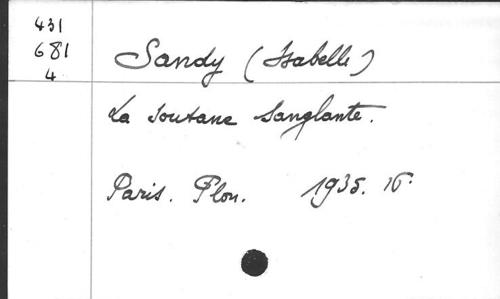 431
681
4
Sandy (Isabelle)
La Soutane Sanglante.
Paris. Plon. 1935. 16°